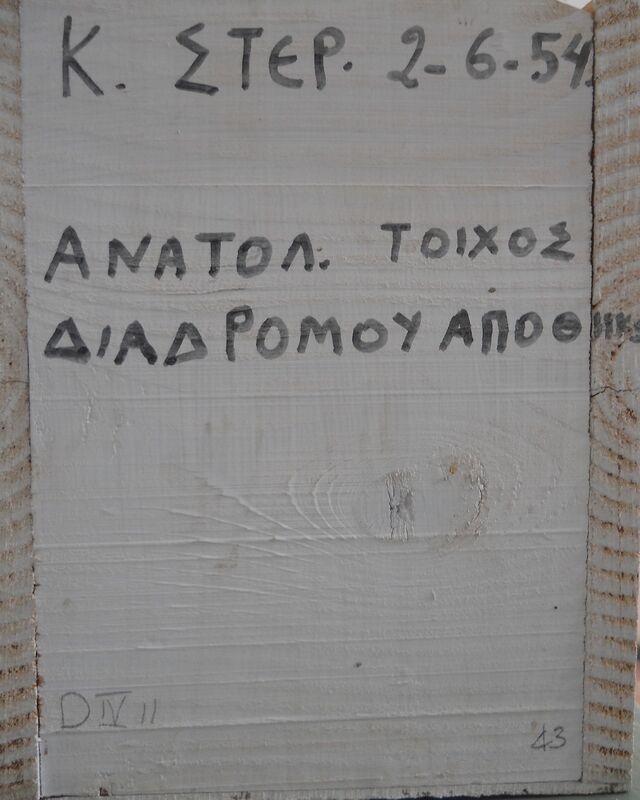 Κ. ΣΤΕΡ. 2-6-54.
ΑΝΑΤΟΛ. ΤΟΙΧΟΣ
ΔΙΑΔΡΟΜΟΥ
D IV 11
43